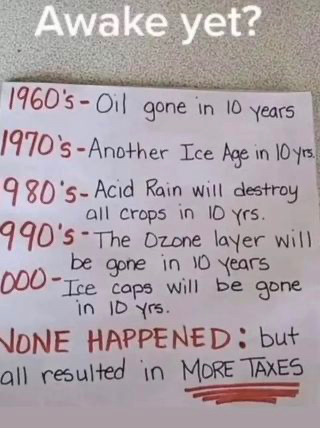 Awake yet?
1960's - Oil gone in 10 years
1970's - Another Ice Age in 10 yrs.
980's - Acid Rain will destroy
all crops in 10 yrs.
990's - The Ozone layer will
be gone in 10 years
000 - Ice caps will be gone
in 10 yrs.
NONE HAPPENED: but
all resulted in MORE TAXES